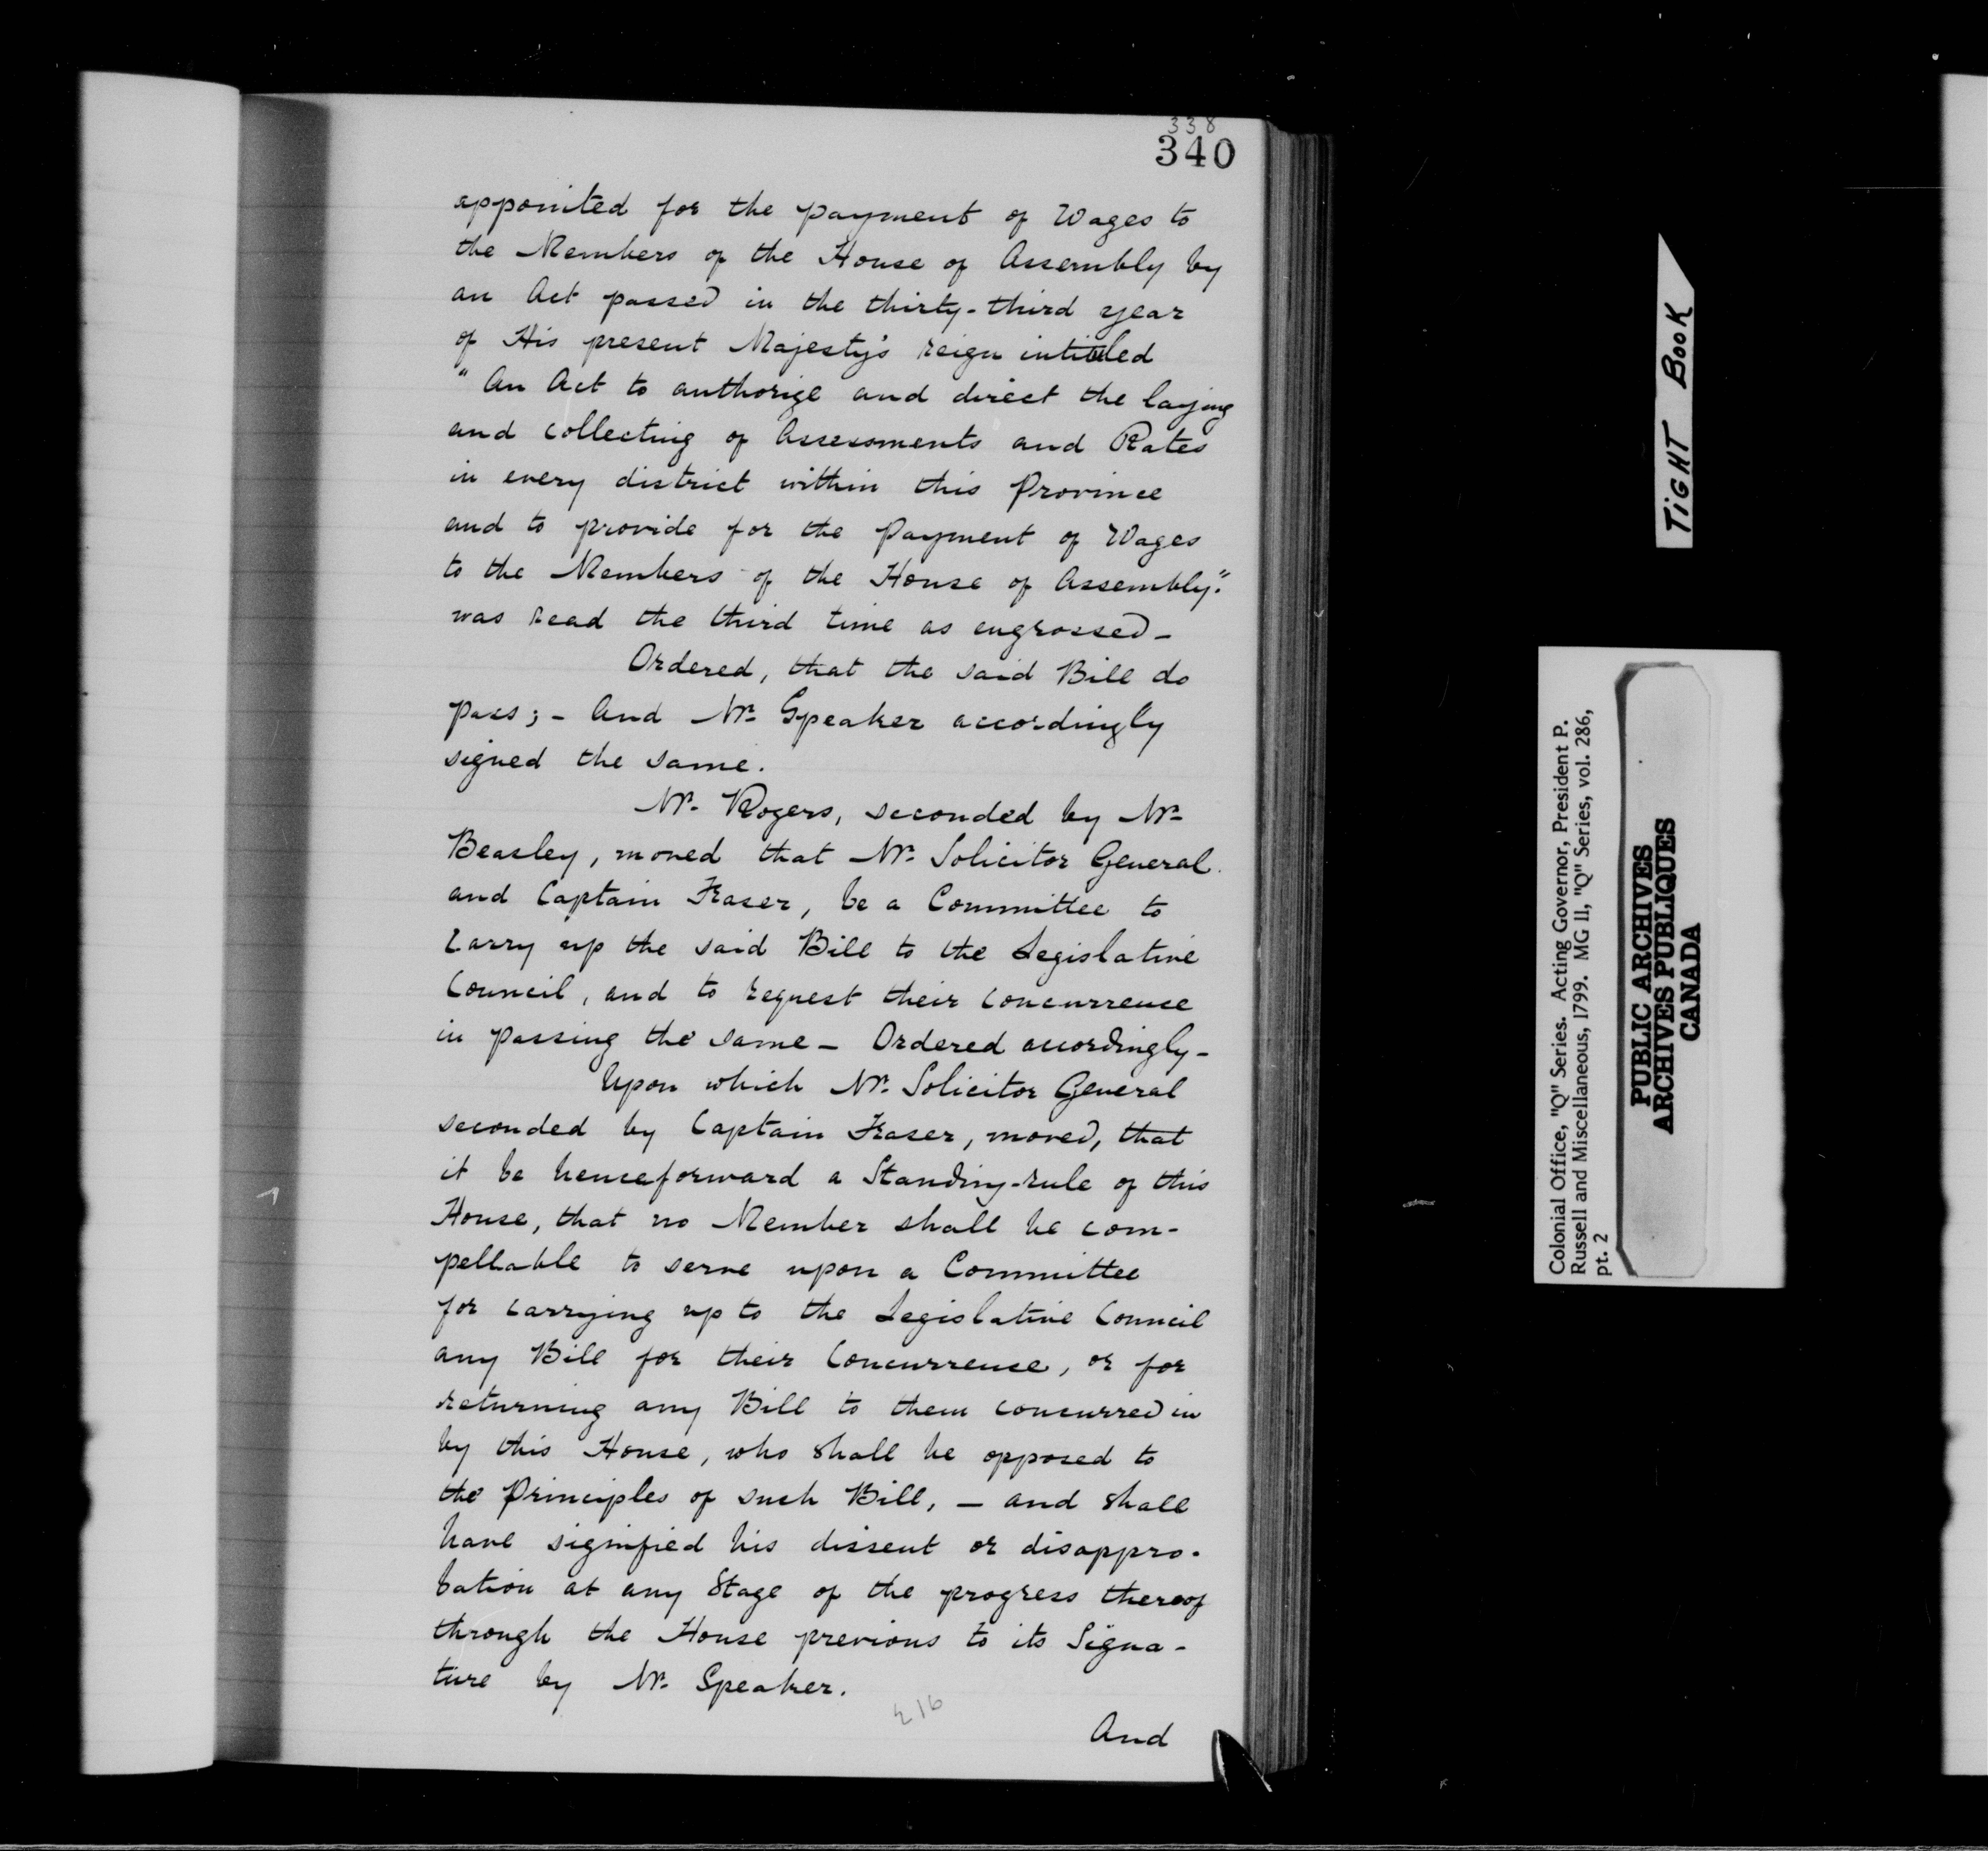 338
340
appointed for the payment of Wages to
the Members of the House of Assembly by
an Act passed in the thirty-third year
of His present Majesty's reign intituled
"An Act to authorize and direct the laying
and collecting of Assessments and Rates
in every district within this Province
and to provide for the Payment of Wages
to the Members of the House of Assembly."
was read the third time as engrossed-
Ordered, that the said Bill do
pass; - And Mr. Speaker accordingly
signed the same.
Mr. Rogers, seconded by Mr.
Beasley, moved that Mr. Solicitor General
and Captain Fraser, be a Committee to
carry up the said Bill to the Legislative
Council, and to request their concurrence
in passing the same - Ordered accordingly-
Upon which Mr. Solicitor General
seconded by Captain Fraser, moved, that
it be henceforward a Standing-rule of this
House, that no Member shall be com-
pellable to serve upon a Committee
for carrying up to the Legislative Council
any Bill for their Concurrence, or for
returning any Bill to them concurred in
by this House, who shall be opposed to
the Principles of such Bill, - and shall
have signified his dissent or disappro-
bation at any Stage of the progress thereof
through the House previous to its Signa-
ture by Mr. Speaker.
216
And
TIGHT BOOK
Colonial Office, "Q" Series. Acting Governor, President P.
Russell and Miscellaneous, 1799. MG 11, "Q" Series, vol. 286,
pt. 2
PUBLIC ARCHIVES
ARCHIVES PUBLIQUES
CANADA